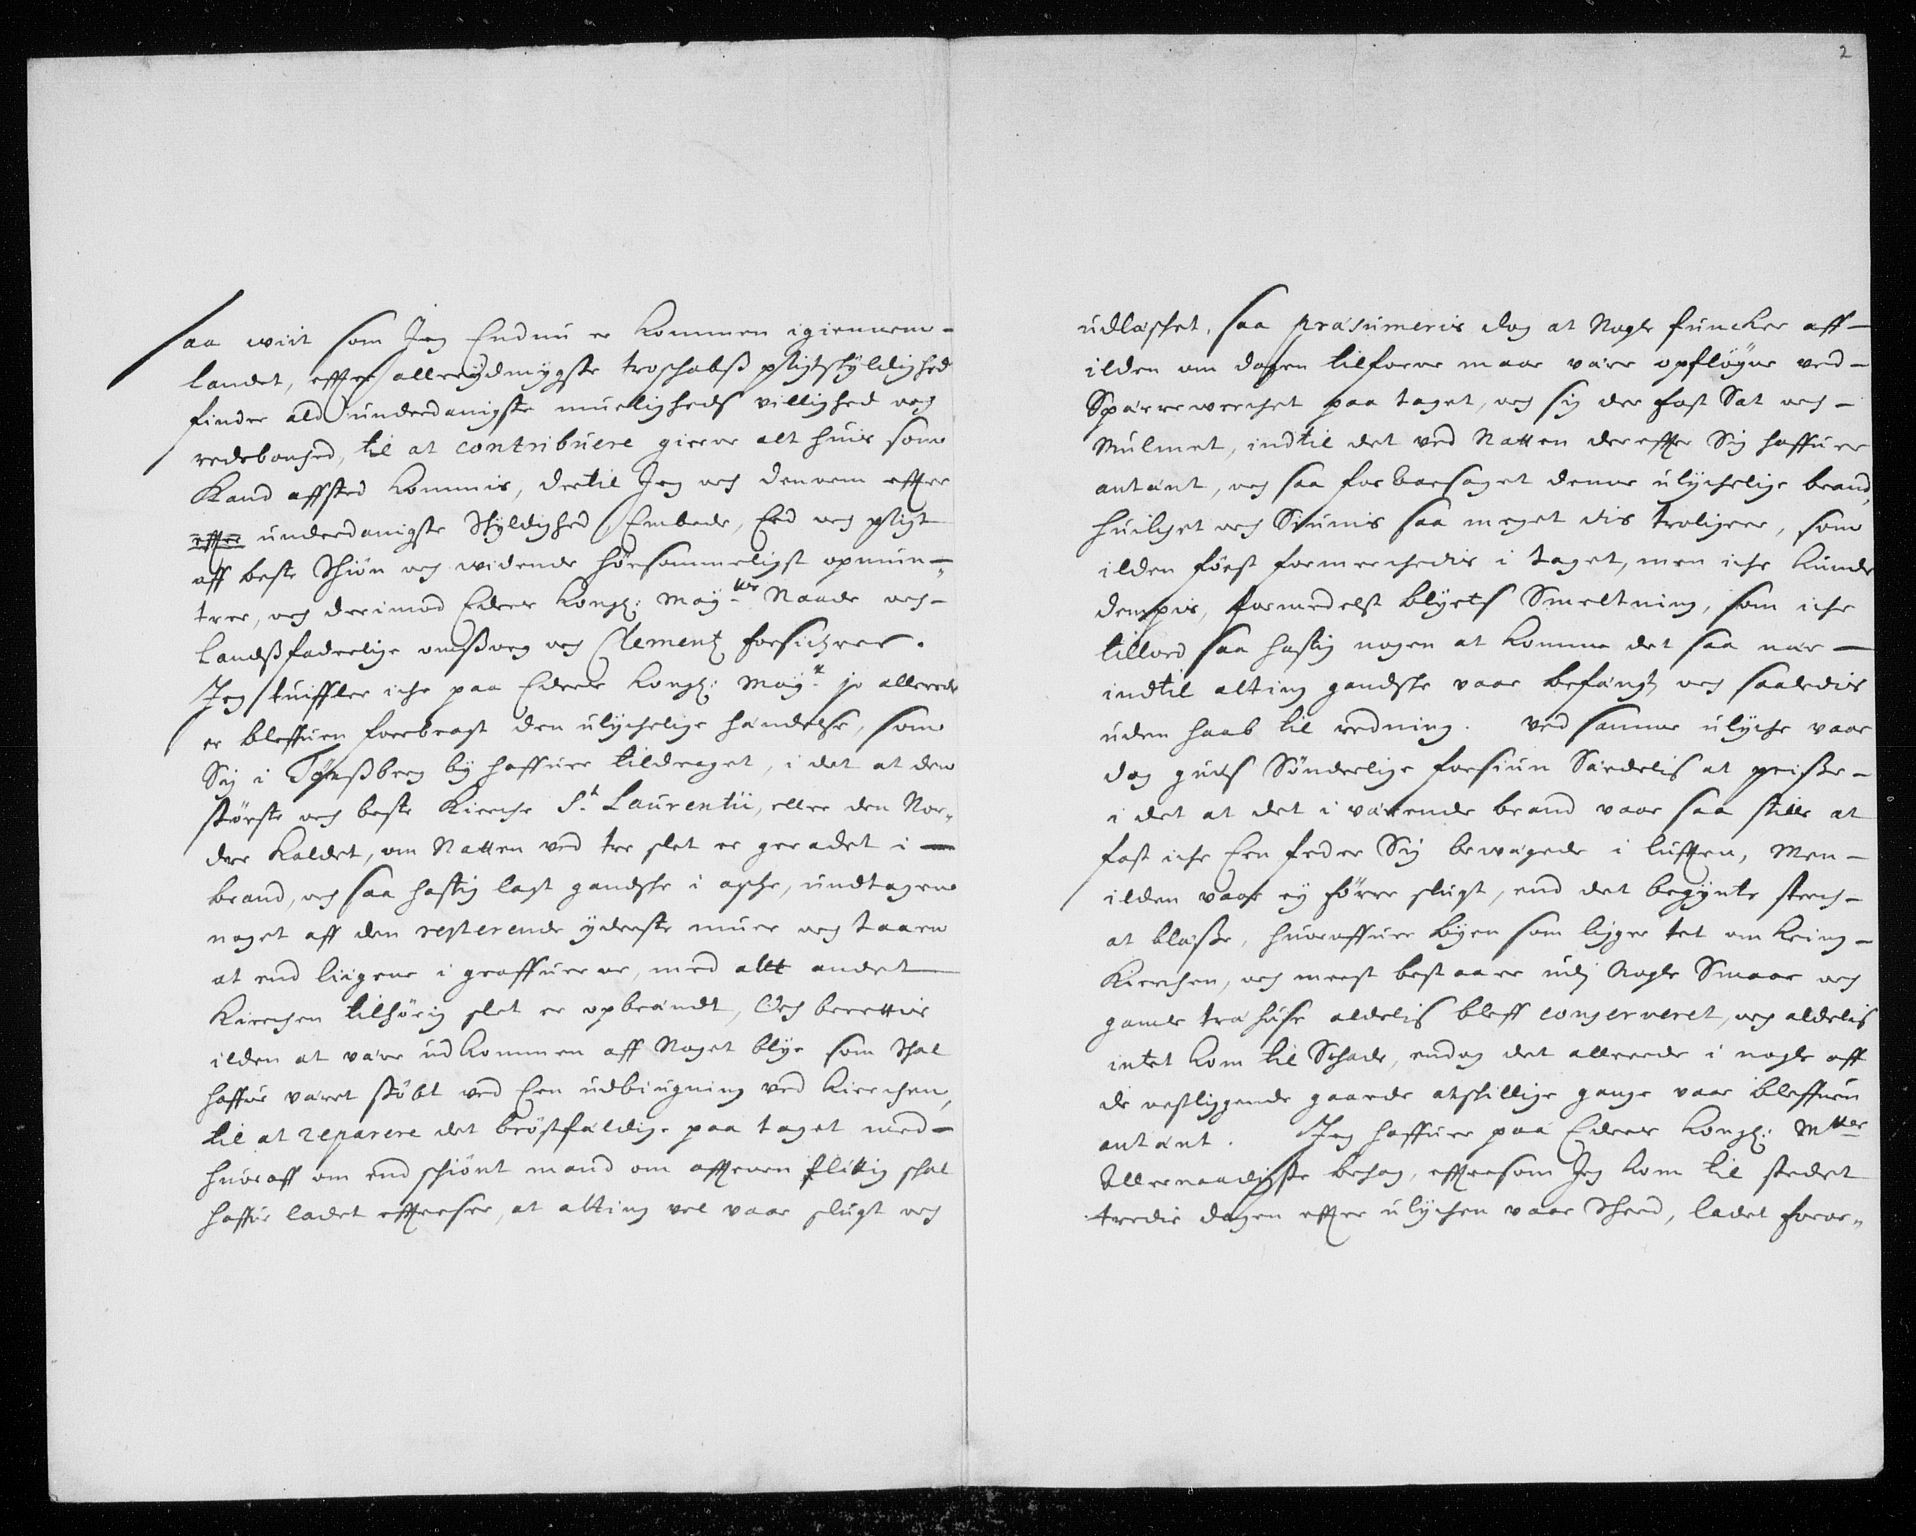 2
saa wiit som Jeg Endnu er kommen igiennem-
landet, effter allerydmygste troschabß pligtskyldighed
finder ald underdanigste mueligheds villighed och
redebonhed, til at contribuere gierne alt huis som
Kand affsted kommis, dertil Jeg och dennem effter
effter underdanigste Skyldighed, Embede, Eed och pligt
aff beste Skiøn och widende hørsommeligst opmun-
trer, och derimod Eders Kongl: May:ttes Naade och-
landßfaderlige omßorg och Clementz forsichrer.
Jeg tuiffler iche paa Eders Kongl: May:tt jo allerede
er bleffuen forebragt den ulychelige hændelse, som
Sig i Tønßberg by haffuer tildraget, i det at den
største och beste Kierche S:t Laurentii, eller den Nor-
dre kaldet, om Natten ved tre slet er geradet i -
brand, och saa hastig lagt gandske i asche, undtagene
noget aff den resterende yderste muer och taaren
at end liigene i graffuerne, med alt andet
Kierchen tilhørig slet er opbrændt, Och berettis
ilden at være udkommen aff Noget blye som skal
haffue været støbt ved Een udbiugning ved Kierchen,
til at reparere det brøstfældige paa taget med-
huoraff om end skiønt mand om afftenen flittig skal
haffue ladet effterse, at alting vel vaar slugt och
udlæsket, saa præsumeris dog at Nogle funcker aff-
ilden om dagen tilforne maa være opfløgne ved-
Sparreverchet paa taget, och sig der fast Sat och-
Mulmet, indtil det ved Natten dereffter Sig haffuer
antænt, och saa foraarsaget denne ulychelige brand,
huilchet och Siunis saa meget dis troligere, som
ilden først formerchedis i taget, men iche kunde
dempis, formedelst blyets Smeltning, som iche
tillod saa hastig nogen at komme det saa nær -
indtil alting gandske vaar befængt och saaledis
uden haab til redning. Ved samme ulyche vaar
dog guds Sønderlige forsiun Særdelis at prisse-
i det at det i værende brand vaar saa stille at
fast iche Een feder Sig bewægede i lufften, Men-
ilden vaar ey førre slugt, end det begynte sterch-
at blæsse, huoroffuer byen som ligger tet om kring-
Kierchen, och meest bestaaer udj Nogle Smaa och
gamle træhuse aldelis bleff conserveret, och aldelis
intet kom til Schade, endog det allerede i nogle aff
de nestliggende gaarde atskillige gange vaar bleffuen
antænt. Jeg haffuer paa Eders Kongl: Mtts
Allernaadigste behag, efftersom Jeg kom til stedet
tredie dagen effter ulychen vaar Skeed, ladet foror-